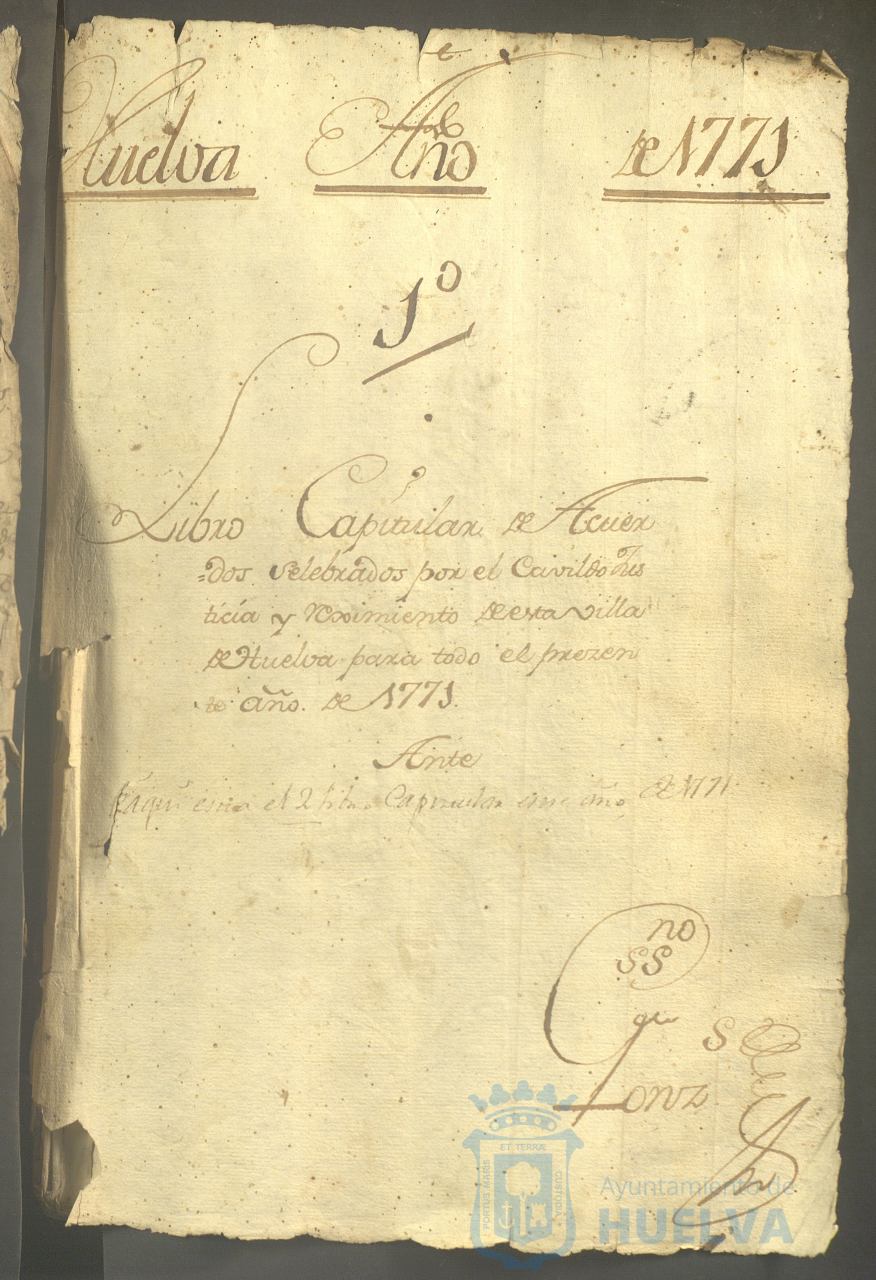 Huelva Año de 1771
1º
Libro Capitular de Acuer
=dos Selebrados por el Cavildo Jus
ticia y Reximiento de esta Villa
de Huelva para todo el prezen
te año. de 1771.
Ante
aqui esta el 2 Capitular año de 1771
no
SS
S
Gonz
ET TERRÆ
PORTUS MARIS
CUSTODIA
Ayuntamiento de
HUELVA